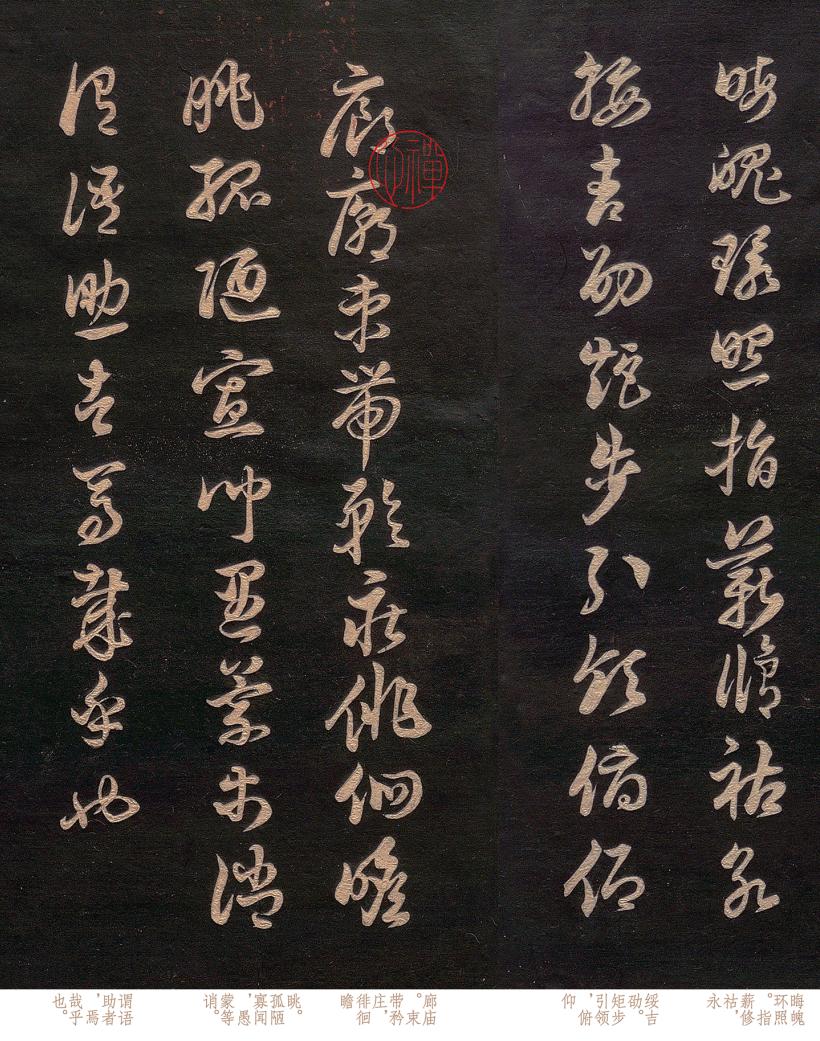 晦魄環照指薪脩祜永
綏吉劭矩步引領俯仰
廊廟束帶矜莊徘徊瞻
眺孤陋寡聞愚蒙等誚
謂語助者焉哉乎也
晦魄环照。指薪修祜，永
绥吉劭。矩步引领，俯仰
廊庙。束带矜庄，徘徊瞻
眺。孤陋寡闻，愚蒙等诮。
谓语助者，焉哉乎也。